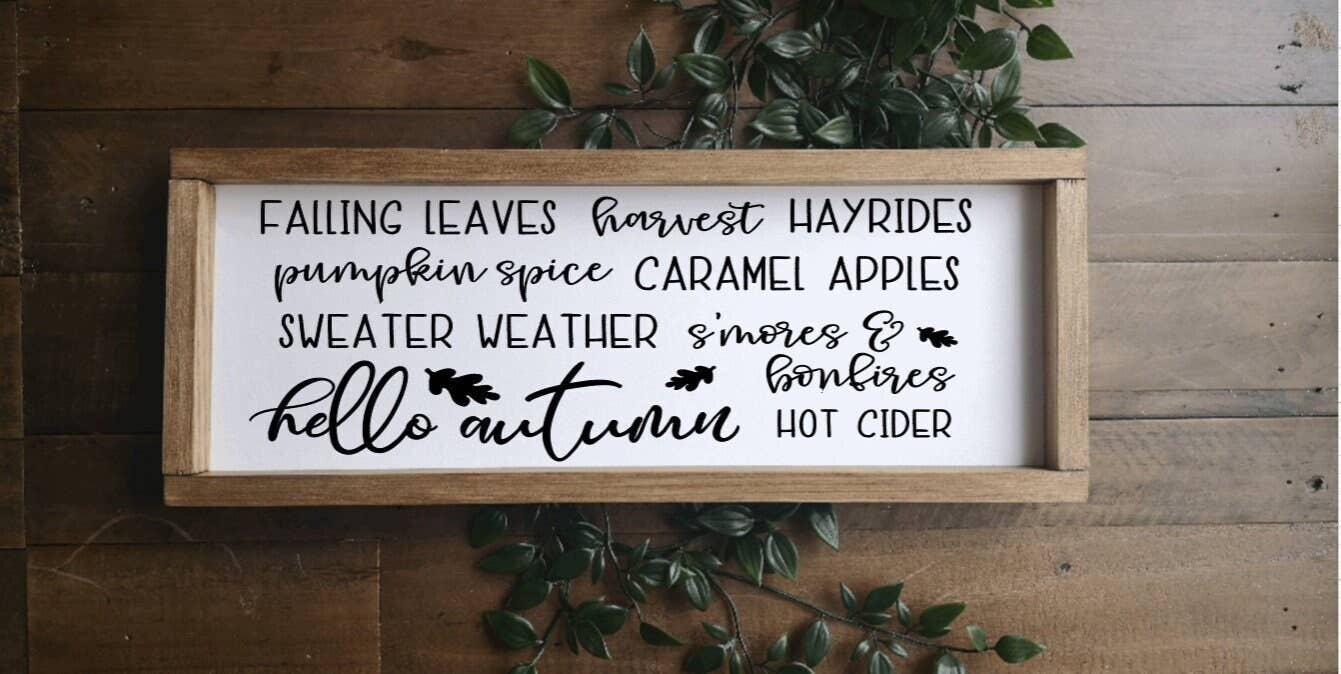 FALLING LEAVES harvest HAYRIDES
pumpkin spice CARAMEL APPLES
SWEATER WEATHER s'mores &
bonfires
hello autumn HOT CIDER